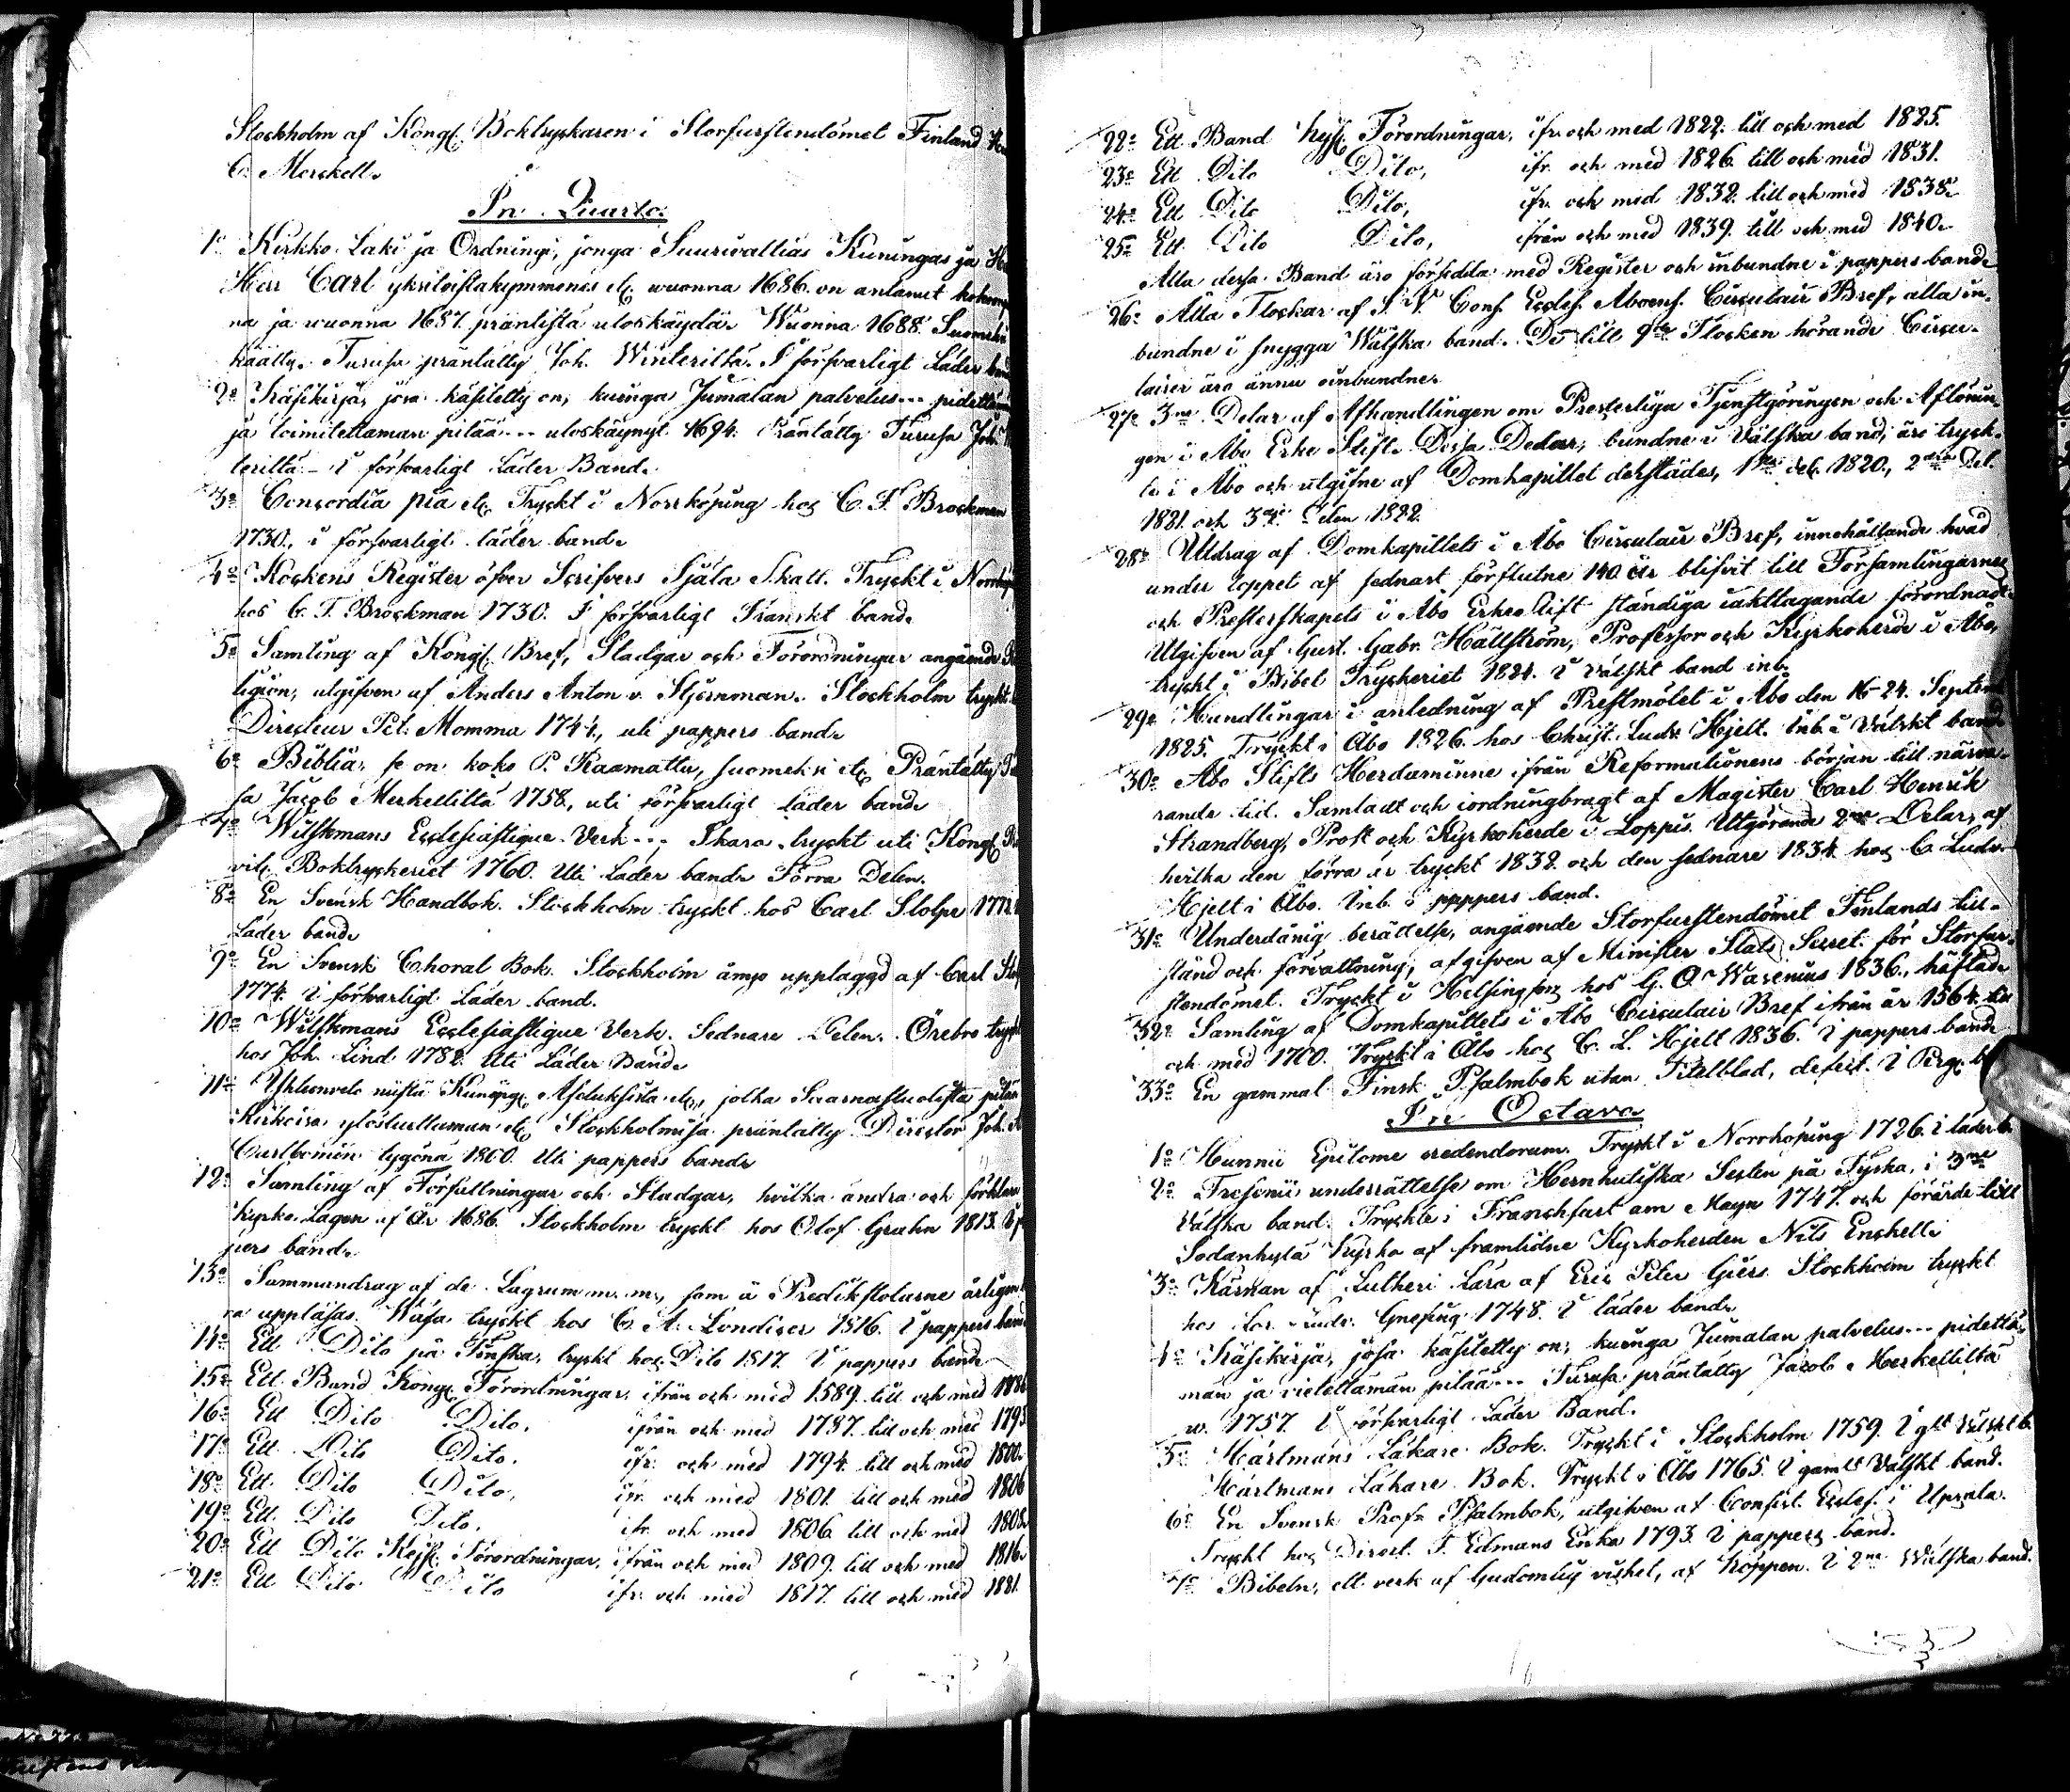 Stockholm af Kongl. Boktryckaren i Storfurstendömet Finland
C. Merckell.
In Quarto.
1o Kirkko Laki ja Ordningi, jonga Suurivaltias Kuningas ja
Herr Carl yksitoistakymmenes etc. wuonna 1686. on antanut
na ja wuonna 1687. präntistä uloskäydä. Wuonna 1688. Suomeksi
käätty. Turusa präntätty Joh. Winterildä. I försvarligt Läder
2o Käsikirja, josa käsitetty on, kuinga Jumalan palvelus...
ja toimitettaman pitää... uloskäynyt 1694. Präntätty Turusa Joh.
terildä - i försvarligt Läder Band.
3o Concordia pia etc. Tryckt i Norrköping hos C. F. Brockman
1730., i försvarligt läder band.
4o Kockens Register öfver Scrifvers Själa Skatt. Tryckt i
hos C. F. Brockman 1730. I försvarligt Franskt band.
5o Samling af Kongl. Bref, Stadgar och Förordningar angående
ligion, utgifven af Anders Anton v. Stjernman. Stockholm tryckt
Directeur Pet. Momma 1744., uti pappers band.
6o Biblia, se on: koko P. Raamattu, suomeksi etc. Präntätty
sa Jacob Merkellildä 1758., uti försvarligt läder band.
7o Wilskmans Ecclesiastique Verk... Skara, tryckt uti Kongl.
vil. Boktryckeriet 1760. Uti Läder band. Förra Delen.
8o En Svensk Handbok. Stockholm tryckt hos Carl Stolpe
Läder band.
9o En Svensk Choral Bok. Stockholm ånyo upplaggd af Carl
1774. i försvarligt Läder band.
10o Wilskmans Ecclesiastique Verk. Sednare Delen. Örebro
hos Joh. Lind 1782. Uti Läder Band.
11o Yhteenveto niistä Kuningl. Asetuksista etc., jotka Saarnastuolista
Kirkoisa ylösluettaman etc. Stockholmisa präntätty Director Joh.
Carlbomin tygönä 1800. Uti pappers band.
12o Samling af Författningar och Stadgar, hvilka ändra och
Kyrko Lagen af År 1686. Stockholm tryckt hos Olof Grahn 1813.
pers band.
13o Sammandrag af de Lagrum m. m., som å Predikstolarne
ra uppläsas. Wasa tryckt hos C. A. Londicer 1816. I pappers band
14o Ett Dito på Finska, tryckt hos Dito 1817. I pappers band
15o Ett Band Kongl. Förordningar, ifrån och med 1589. till och med
16o Ett Dito Dito, ifrån och med 1787. till och med 1793
17o Ett Dito Dito. ifr. och med 1794. till och med 1800.
18o Ett Dito Dito, ifr. och med 1801. till och med 1806
19o Ett Dito Dito, ifr. och med 1806. till och med 1808.
20o Ett Dito Kejs. Förordningar, ifrån och med 1809. till och med 1816.
21o Ett Dito Dito ifr. och med 1817. till och med 1821.
22o Ett Band Kejs. Förordningar, ifr. och med 1822. till och med 1825.
23o Ett Dito Dito, ifr. och med 1826. till och med 1831.
24o Ett Dito Dito, ifr. och med 1832. till och med 1838.
25o Ett Dito Dito, ifrån och med 1839. till och med 1840.
Alla dessa Band äro försedda med Register och inbundne i pappers band.
26o Alla Flockar af Cons. Eccles. Aboens. Circulair Bref, alla in-
bundne i snygga Wälska band. De till 9de Flocken hörande Circu-
lairer äro ännu oinbundne.
27o 3ne Delar af Afhandlingen om Presterliga Tjenstgöringen och Aflönin-
gen i Åbo Erke Stift. Dessa Delar, bundne i Välska band, äro tryck-
te i Åbo och utgifne af Domkapitlet derstädes, 1sta del. 1820., 2dra Del.
1821. och 3dje Delen 1822.
28o Utdrag af Domkapitlets i Åbo Circulair Bref, innehållande hvad
under loppet af sednast förflutne 140 år blifvit till Församlingarnes
och Presterskapets i Åbo Erkestift ständiga iakttagande förordnadt.
Utgifven af Gust. Gabr. Hällström, Professor och Kyrkoherde i Åbo,
tryckt i Bibel Tryckeriet 1824. I välskt band inb.
29o Handlingar i anledning af Prestmötet i Åbo den 16-24. Septemb
1825. Tryckt i Åbo 1826. hos Christ. Ludv. Hjelt. Inb. i Välskt band
30o Åbo Stifts Herdaminne ifrån Reformationens början till närva-
rande tid. Samladt och iordningbragt af Magister Carl Henrik
Strandberg, Prost och Kyrkoherde i Loppis. Utgörande 2ne Delar, af
hvilka den förra är tryckt 1832. och den sednare 1834. hos C. Ludv.
Hjelt i Åbo. Inb. i pappers band.
31o Underdånig berättelse, angående Storfurstendömet Finlands till-
stånd och förvaltning, afgifven af Minister Stats Secret. för Storfur-
stendömet. Tryckt i Helsingfors hos G. O. Wasenius 1836., häftad.
32o Samling af Domkapitlets i Åbo Circulair Bref ifrån år 1564. till
och med 1700. Tryckt i Åbo hos C. L. Hjelt 1836. I pappers band
33o En gammal Finsk Psalmbok utan Titelblad, defect. I Perg. b
In Octavo.
1o Hunnii Epitome credendorum. Tryckt i Norrköping 1726. i läder b.
2o Fresenii underrättelse om Hernhutiska Secten på Tyska, i 3ne
Välska band. Tryckte i Franckfurt am Mayn 1747. och förärde till
Sodankylä Kyrka af framlidne Kyrkoherden Nils Enckell.
3o Kärnan af Lutheri Lära af Eric Peter Giers. Stockholm tryckt
hos Lor. Ludv. Grefing 1748. I läder band.
4o Käsikirja, josa käsitetty on, kuinga Jumalan palvelus... pidettä-
män ja toimitettaman pitää... Turusa präntätty Jacob Merkellildä
w. 1757. I försvarligt Läder Band.
5o Hartmans Läkare Bok. Tryckt i Stockholm 1759. I glt Välskt b.
Hartmans Läkare Bok. Tryckt i Åbo 1765. I gamlt Välskt band.
6o En Svensk Prof. Psalmbok, utgifven af Consist. Eccles. i Upsala.
Tryckt hos Direct. F. Edmans Enka 1793. I pappers band.
7o Bibeln, ett verk af Gudomlig vishet, af Köppen. I 2ne Wälska band.